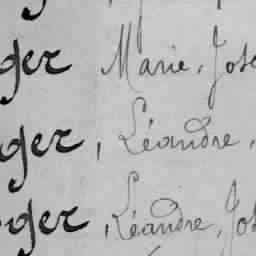 ger Marie, Jose
ger, Léandre,
ger, Léandre, Jos